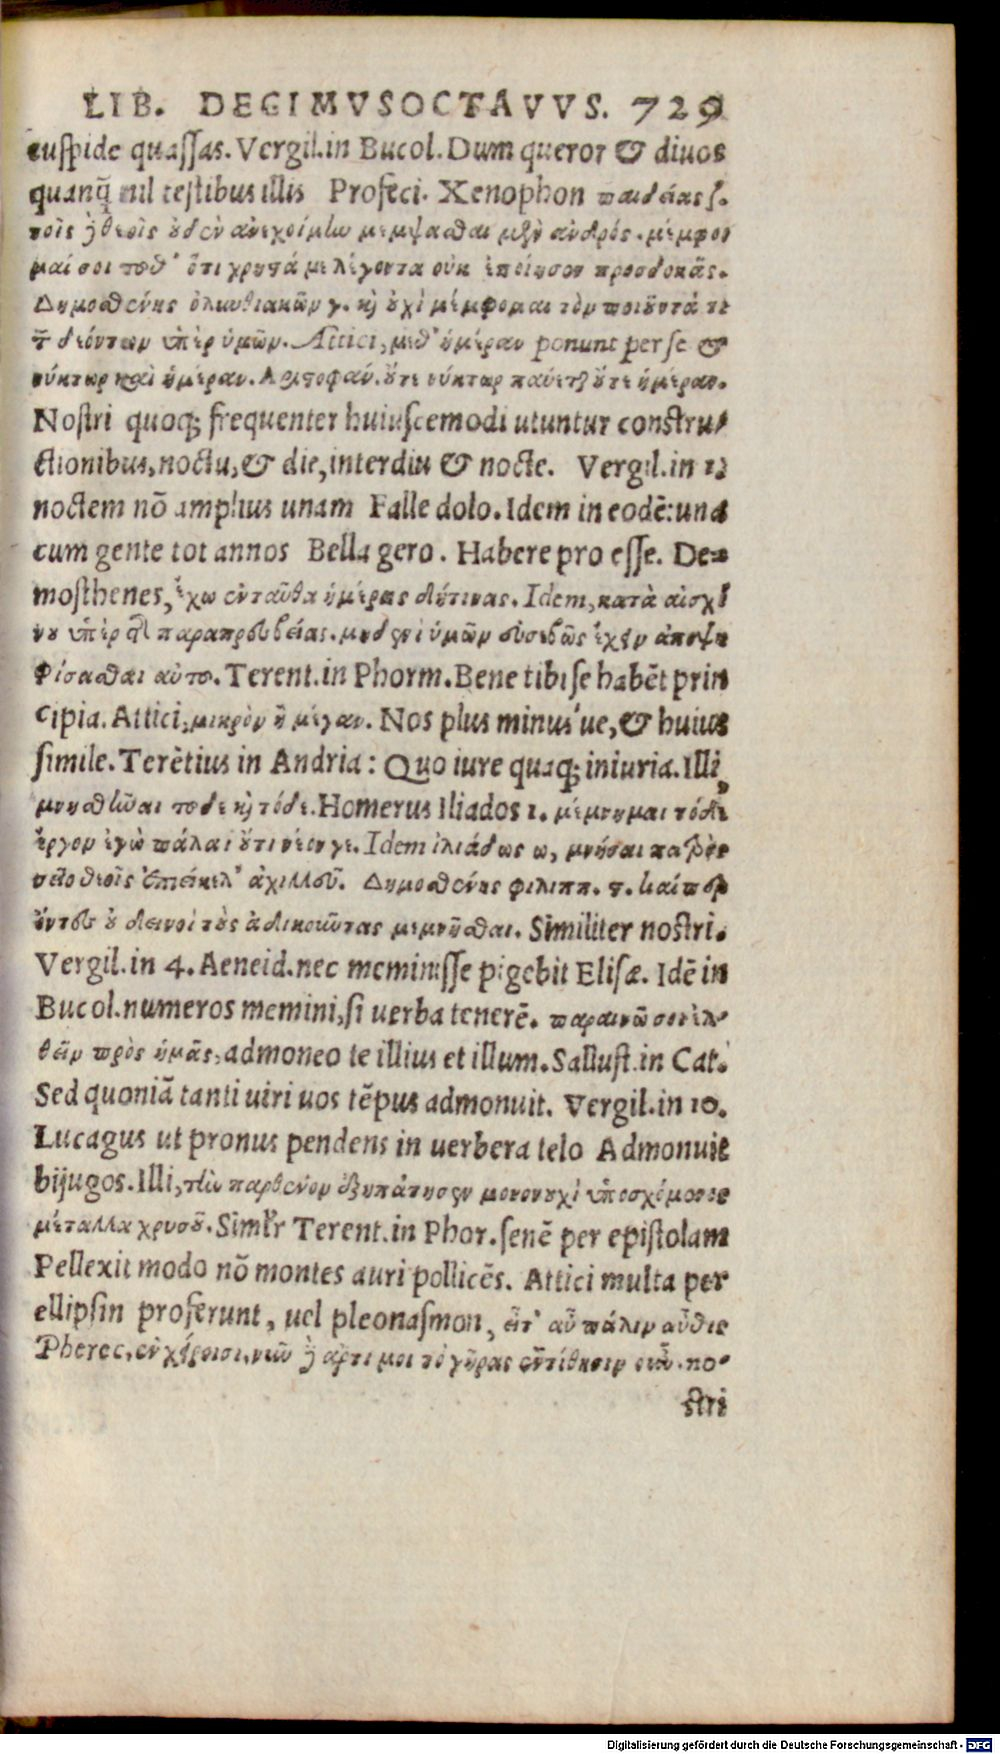 LIB. DECIMVSOCTAVVS. 729
cuspide quassas. Vergil. in Bucol. Dum queror & diuos
quanq̃ nil testibus illis Profeci. Xenophon παιδείας ϛ.
τοῖς ἢ θεοῖς οὐδὲν ἀνεχοίμην μέμψαϑαι ἀνδρός. μέμφον
μαί σοι ὅτι χρηστά με λέγοντα οὐκ ἐποίησον προσδοκᾶς.
Δημοσθένης ὀλυνθιακῶν γ. καὶ οὐχὶ μέμφομαι τὸν ποιοῦντά τι
τ͂ δεόντων ὑπὲρ ὑμῶν. Attici, μεθ' ἡμέραν ponunt per se &
νύκτωρ καὶ ἡμέραν. Αριστοφάν. οὔτε νύκτωρ παύεται οὔτε ἡμέρας.
Nostri quoq; frequenter huiuscemodi utuntur constru-
ctionibus, noctu, & die, interdiu & nocte. Vergil. in 1.
noctem nõ amplius unam Falle dolo. Idem in eodẽ: una
cum gente tot annos Bella gero. Habere pro esse. De-
mosthenes, ἔχω ἐνταῦθα ἡμέρας Idem, κατὰ αἰσχί
νου ὑπὲρ παραπρεσβείας. ὑμῶν εὐσεβῶς ἔχειν ἀποψη
φίσαϑαι αὐτο. Terent. in Phorm. Bene tibi se habẽt prin
cipia. Attici, μικρὸν ἢ μέγαν. Nos plus minus'ue, & huius
simile. Terẽtius in Andria: Quo iure quaq; iniuria. Illi,
μνηϑῆναι τοδε καὶ τόδε. Homerus Iliados 1. μέμνημαι τόδε
ἔργον ἐγὼ πάλαι οὔτι νέον γε. Idem ἰλιάδως ω, μνῆσαι πατρὸς
σεῖο θεοῖς ἐπιείκελ' ἀχιλλεῦ. Δημοσθένης φιλιππ. καίπερ
ὄντες οὐ δεινοὶ τοὺς ἀδικοῦντας μεμνῆϑαι. Similiter nostri.
Vergil. in 4. Aeneid. nec meminisse pigebit Elisæ. Idẽ in
Bucol. numeros memini, si uerba tenerẽ. παραινῶ σοι ἐλ-
θεῖν πρὸς ἡμᾶς, admoneo te illius et illum. Sallust. in Cat.
Sed quoniã tanti uiri uos tẽpus admonuit. Vergil. in 10.
Lucagus ut pronus pendens in uerbera telo Admonuit
bijugos. Illi, τὴν παρθένον ἐξηπάτησεν μονονουχὶ ὑποσχόμενος
μέταλλα χρυσοῦ. Simĩr Terent. in Phor. senẽ per epistolam
Pellexit modo nõ montes auri pollicẽs. Attici multa per
ellipsin proferunt, uel pleonasmon, εἶτ' αὖ πάλιν αὖθις
Pherec, ἐν χείροισι, νῦν ἢ ἄρτι μοι τὸ γῆρας ἐντίθησιν νοῦν. no-
stri
Digitalisierung gefördert durch die Deutsche Forschungsgemeinschaft - DFG